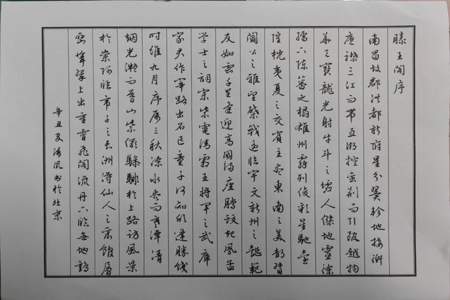 滕王阁序
南昌故郡洪都新府星分翼轸地接衡
庐襟三江而带五湖控蛮荆而引瓯越物
华天宝龙光射牛斗之墟人杰地灵徐
孺下陈蕃之榻雄州雾列俊彩星驰台
隍枕夷夏之交宾主尽东南之美都督
阎公之雅望棨戟遥临宇文新州之懿范
友如云千里逢迎高朋满座腾蛟起凤孟
学士之词宗紫电清霜王将军之武库
家君作宰路出名区童子何知躬逢胜饯
时维九月序属三秋潦水尽而寒潭清
烟光凝而暮山紫俨骖騑於上路访风景
於崇阿临帝子之长洲得仙人之旧馆层
峦耸翠上出重霄飞阁流丹下临无地鹤
辛丑夏清风书於北京